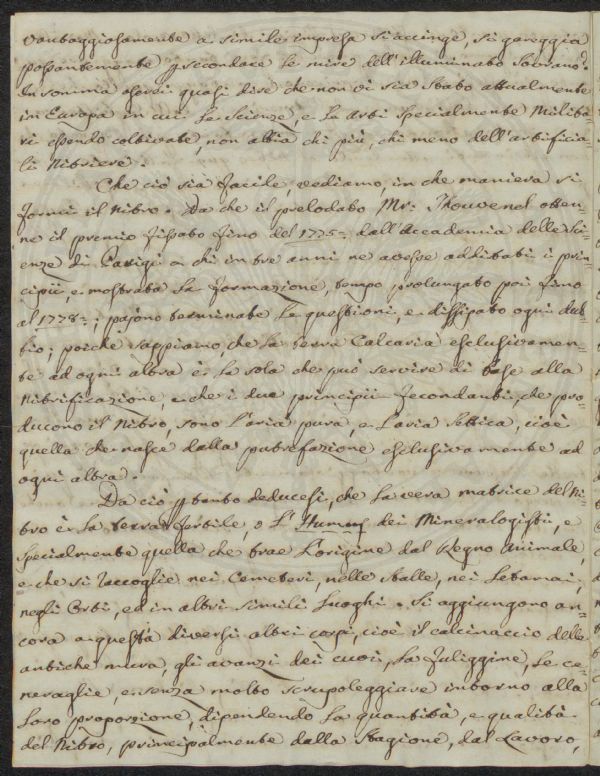 vantaggiosamente a simile impresa si accinge, si gareggia
possantemente p secondare le mire dell'illuminato Sovrano.
In somma oserei quasi dire che non vi sia Stato attualmente
in Europa in cui le Scienze, e le arti specialmente Milita-
ri essendo coltivate, non abbia chi più, chi meno dell'artificia-
li Nitriere.
Che ciò sia facile, vediamo, in che maniera si
formi il Nitro. Da che il prelodato Mr. Thouvenel otten-
ne il premio fissato fino del 1775= dall'Accademia delle Sci-
enze di Parigi a chi in tre anni ne avesse additati i prin-
cipii, e mostrata la formazione, tempo prolungato poi fino
al 1778=; pajono terminate le questioni, e dissipato ogni dub-
bio; poichè sappiamo, che la terra Calcaria esclusivamen-
te ad ogni altra è la sola che può servire di base alla
Nitrificazione, e che i due principii fecondanti, che pro-
ducono il Nitro, sono l'aria pura, e l'aria settica, cioè
quella che nasce dalla putrefazione esclusivamente ad
ogni altra.
Da ciò p tanto deducesi, che la vera matrice del Ni-
tro è la terra fertile, o l'Humus dei Mineralogisti, e
specialmente quella che trae l'origine dal Regno Animale,
e che si raccoglie nei Cemeteri, nelle stalle, nei letamai,
negli Orti, ed in altri simili luoghi. Si aggiungono an-
cora a questa diversi altri corpi, cioè il calcinaccio delle
antiche mura, gli avanzi dei cuoi, la fuliggine, le ce-
neraglie, e senza molto scrupoleggiare intorno alla
loro proporzione, dipendendo la quantità, e qualità
del Nitro, principalmente dalla Stagione, dal Lavoro,